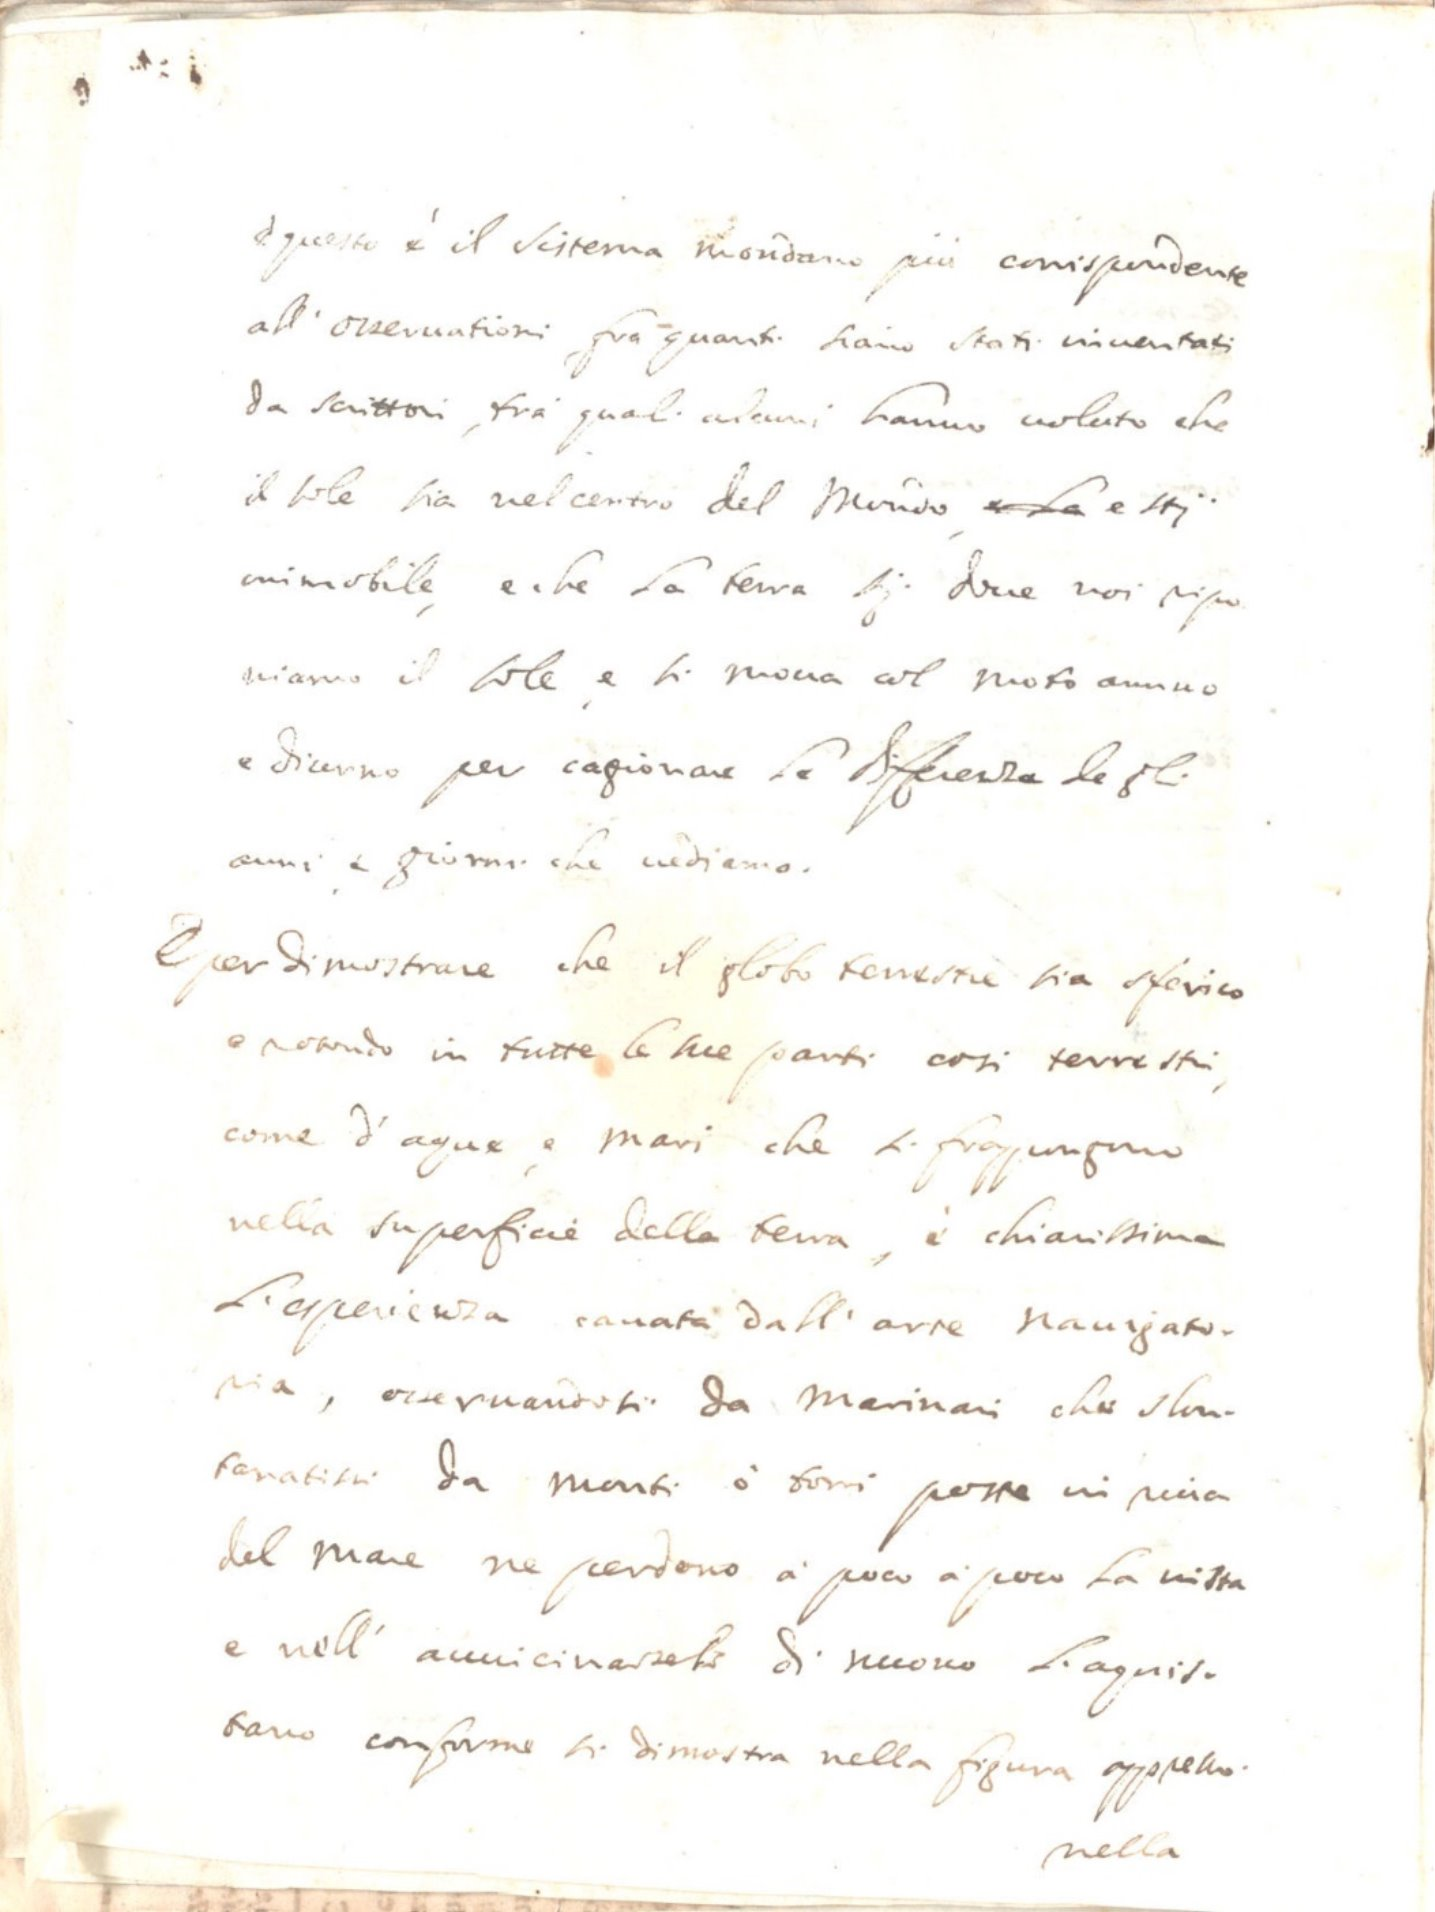 e questo è il sistema mondano più corrispondente
all' osseruationi frà quanti siano stati inuentati
da scrittori, trà quali alcuni hanno uoluto che
il sole sia nel centro del Mondo, e la e stij
immobile, e che la terra sij doue noi ripo
niamo il sole, e si moua col moto annuo
e diurno per cagionare la differenza degli
anni, e giorni che uediamo.
E per dimostrare che il globo terrestre sia sferico
e rotondo in tutte le sue parti così terrestri,
come d' aque, e mari che si frappongono
nella superficie della terra, è chiarissima
l' esperienza cauata dall' arte nauigato-
ria, osseruandosi da marinari che slon-
tanatisi da monti ò torri poste in riua
del mare ne perdono à poco à poco la uista
e nell' auuicinarseli di nuouo l' aquis-
tano conforme si dimostra nella figura appresso.
nella